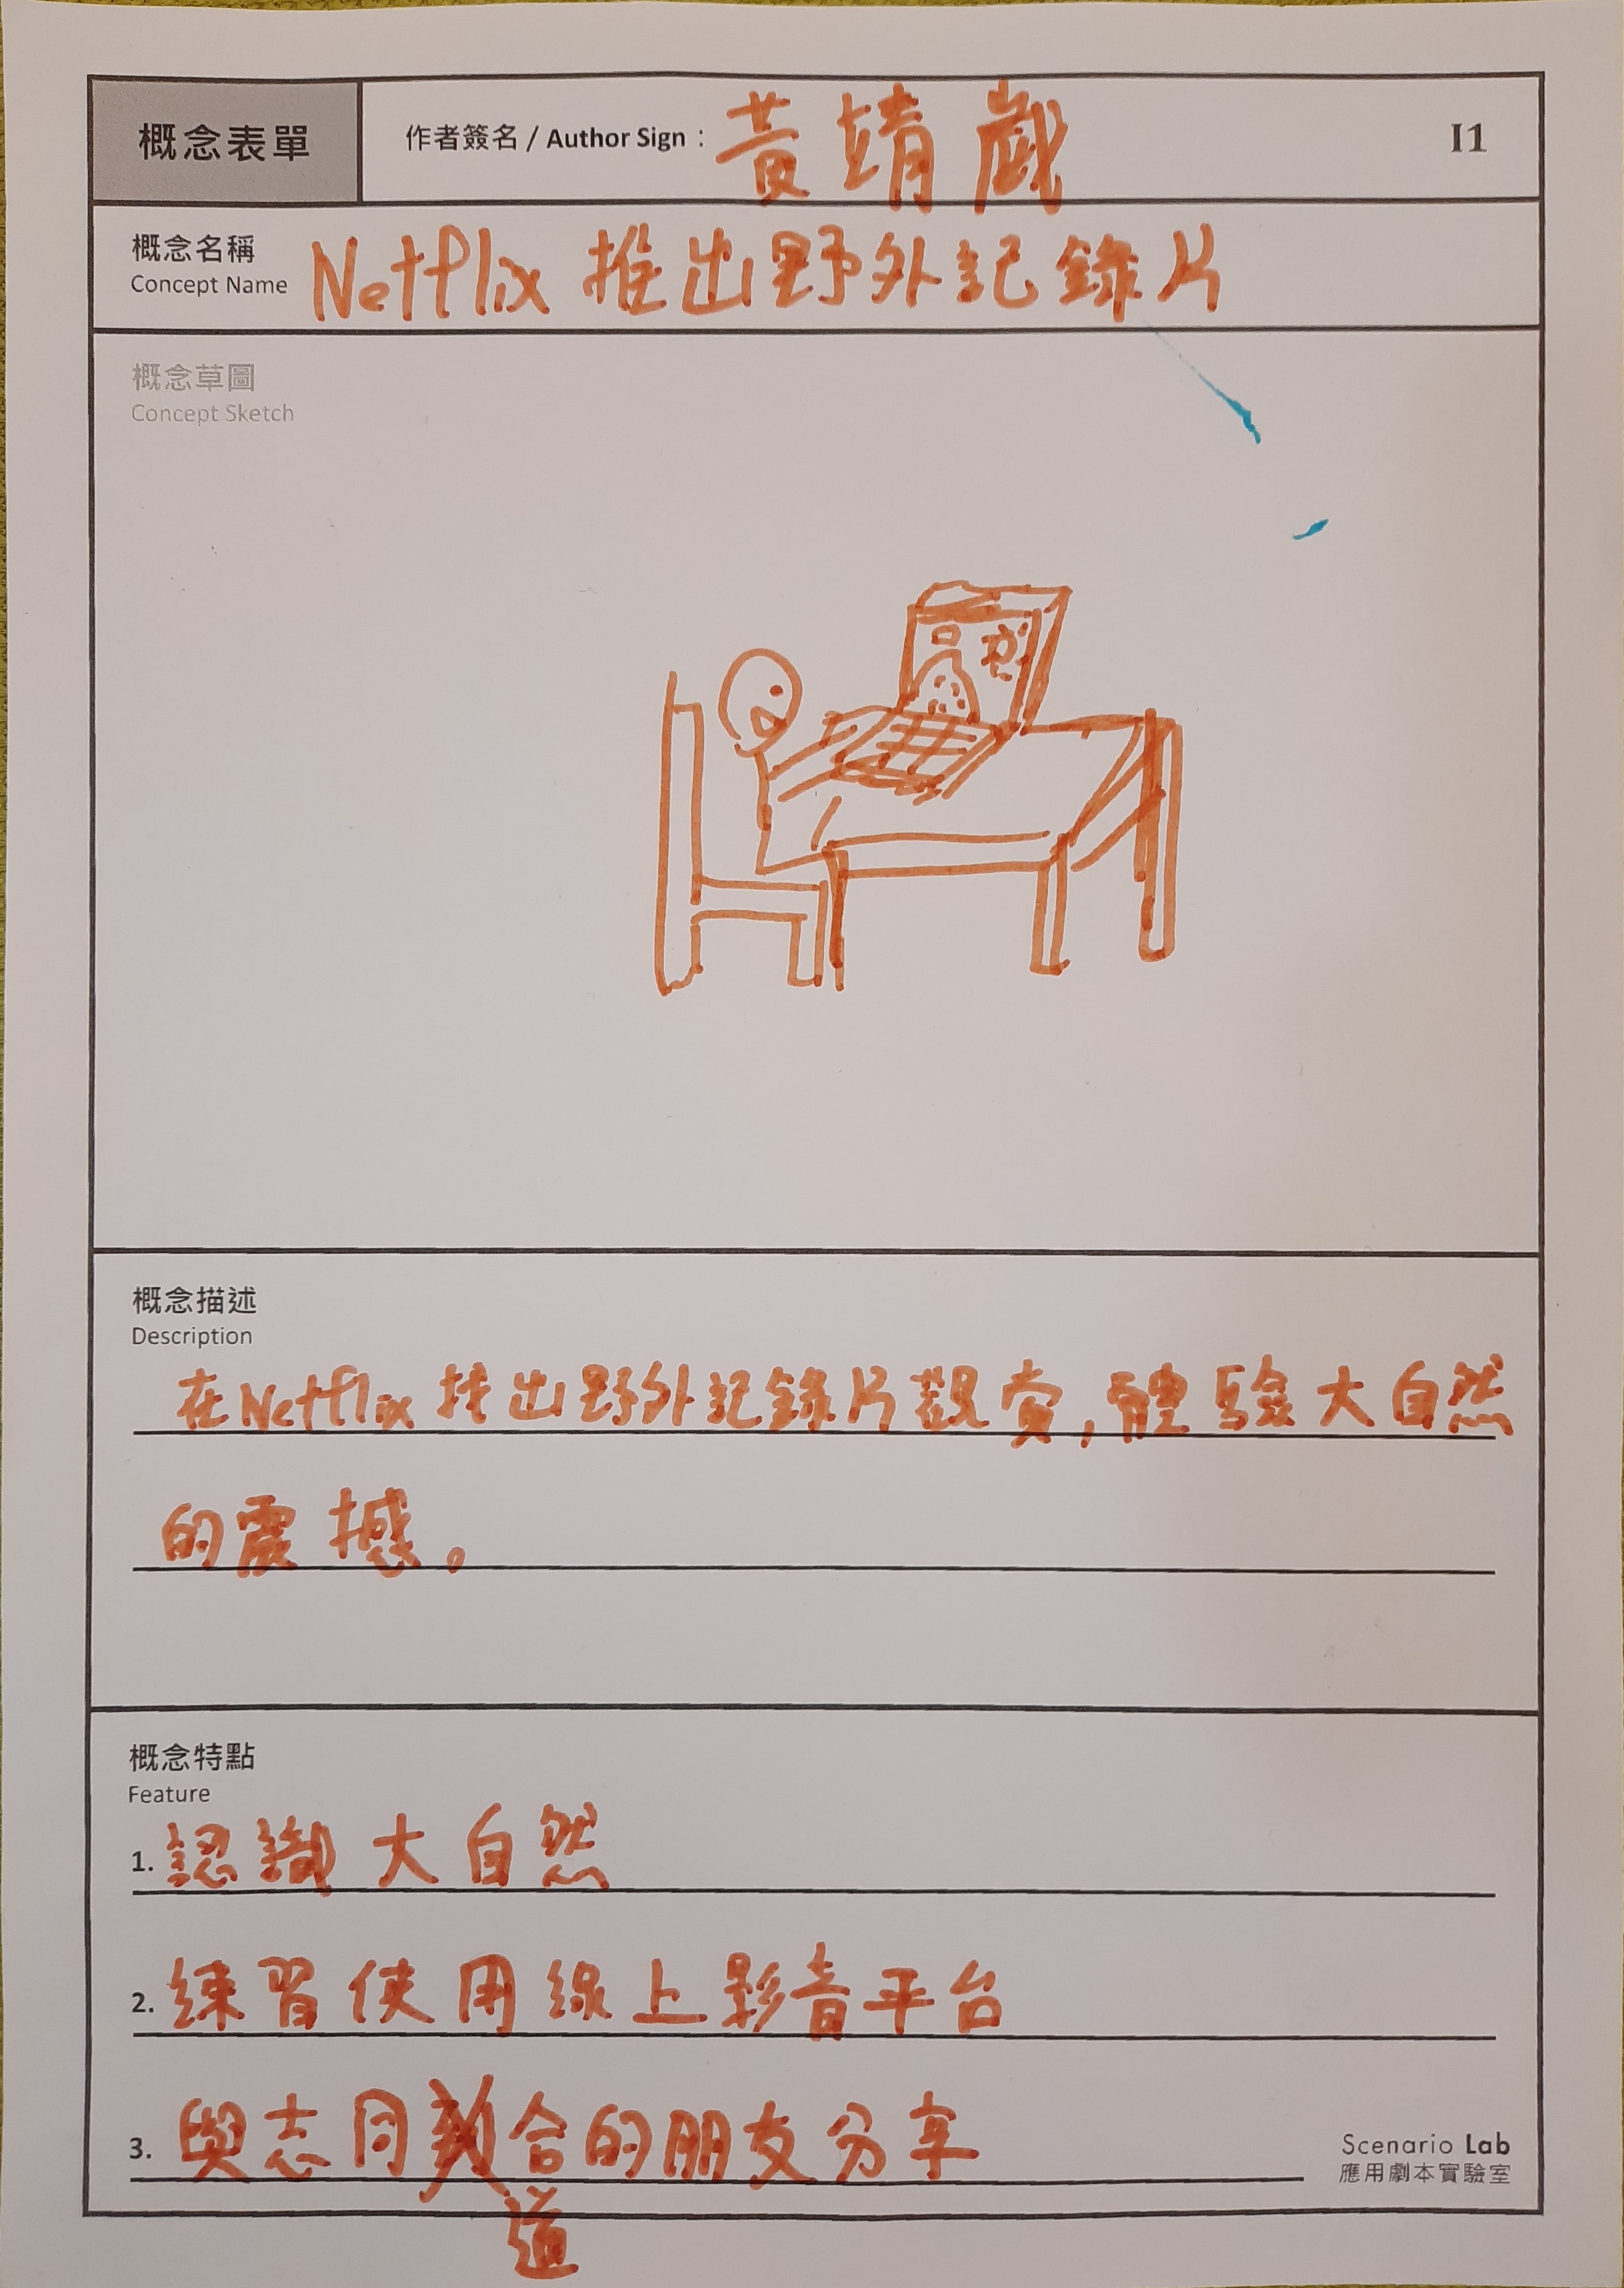 概念表單
作者簽名 / Author Sign : 黃靖崴
I1
概念名稱
Concept Name
Netflix 推出野外記錄片
概念草圖
Concept Sketch
概念描述
Description
在Netflix 找出野外記錄片觀賞,體驗大自然
的震撼。
概念特點
Feature
1. 認識大自然
2. 練習使用線上影音平台
3. 與志同道合的朋友分享
Scenario Lab
應用劇本實驗室